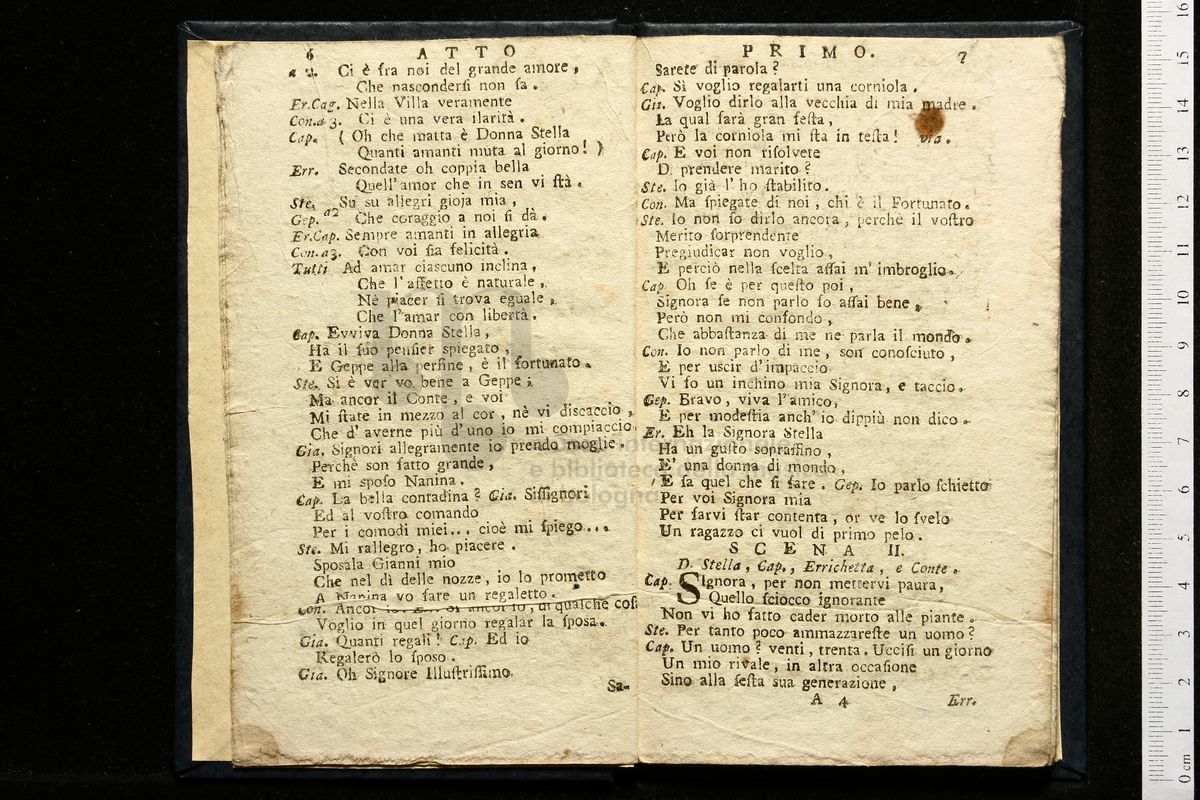 6 ATTO
a 2. Ci è fra noi del grande amore,
Che nasconderſi non ſa.
Er.Cag. Nella Villa veramente
Con.a 3. Ci è una vera ilarità.
Cap. (Oh che matta è Donna Stella
Quanti amanti muta al giorno!)
Err. Secondate oh coppia bella
Quell'amor che in sen vi ſtà.
Ste. Su su allegri gioja mia,
Gep. a2 Che coraggio a noi ſi dà.
Er.Cap. Sempre amanti in allegria
Con.a3. Con voi ſia felicità.
Tutti Ad amar ciascuno inclina,
Che l'affetto è naturale,
Nè piacer ſi trova eguale,
Che l'amar con libertà.
Cap. Evviva Donna Stella,
Ha il ſuo penſier spiegato,
E Geppe alla perfine, è il fortunato.
Ste. Si è ver vo bene a Geppe;
Ma ancor il Conte, e voi
Mi ſtate in mezzo al cor, nè vi discaccio,
Che d'averne più d'uno io mi compiaccio
Gia. Signori allegramente io prendo moglie.
Perchè son fatto grande,
E mi spoſo Nanina.
Cap. La bella contadina? Gia. Siſſignori
Ed al voſtro comando
Per i comodi miei... cioè mi ſpiego...
Ste. Mi rallegro, ho piacere.
Sposala Gianni mio
Che nel dì delle nozze, io lo prometto
A Nanina vo fare un regaletto.
Con. Ancor io. Err. Si ancor io, di qualche coſa
Voglio in quel giorno regalar la ſposa.
Gia. Quanti regali! Cap. Ed io
Regalerò lo ſposo.
Gia. Oh Signore Illuſtriſſimo
Sa-
PRIMO. 7
Sarete di parola?
Cap. Sì voglio regalarti una corniola.
Gia. Voglio dirlo alla vecchia di mia madre.
La qual farà gran feſta,
Però la corniola mi ſta in teſta! via.
Cap. E voi non riſolvete
D. prendere marito?
Ste. Io già l'ho ſtabilito.
Con. Ma ſpiegate di noi, chi è il Fortunato.
Ste. Io non ſo dirlo ancora, perchè il voſtro
Merito ſorprendente
Pregiudicar non voglio,
E perciò nella ſcelta aſſai m'imbroglio.
Cap. Oh ſe è per queſto poi,
Signora ſe non parlo ſo aſſai bene,
Però non mi confondo,
Che abbaſtanza di me ne parla il mondo.
Con. Io non parlo di me, son conoſciuto,
E per uscir d'impaccio
Vi fo un inchino mia Signora, e taccio.
Gep. Bravo, viva l'amico,
E per modeſtia anch'io dippiù non dico.
Er. Eh la Signora Stella
Ha un guſto sopraffino,
E' una donna di mondo,
E ſa quel che ſi fare. Gep. Io parlo ſchietto
Per voi Signora mia
Per farvi ſtar contenta, or ve lo ſvelo
Un ragazzo ci vuol di primo pelo.
SCENA II.
D. Stella, Cap., Errichetta, e Conte.
Cap. SIgnora, per non mettervi paura,
Quello ſciocco ignorante
Non vi ho fatto cader morto alle piante.
Ste. Per tanto poco ammazzareſte un uomo?
Cap. Un uomo? venti, trenta. Ucciſi un giorno
Un mio rivale, in altra occaſione
Sino alla ſeſta sua generazione,
A 4 Err.